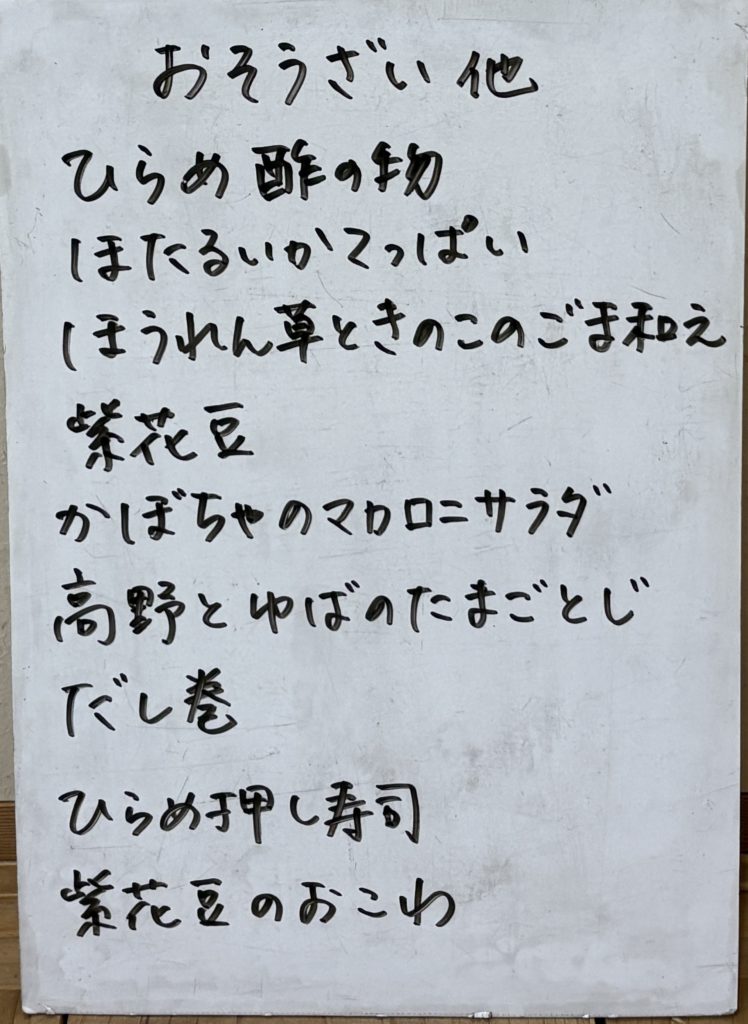 おそうざい 他
ひらめ 酢の物
ほたるいかてっぱい
ほうれん草ときのこのごま和え
紫花豆
かぼちゃのマカロニサラダ
高野とゆばのたまごとじ
だし巻
ひらめ押し寿司
紫花豆のおこわ